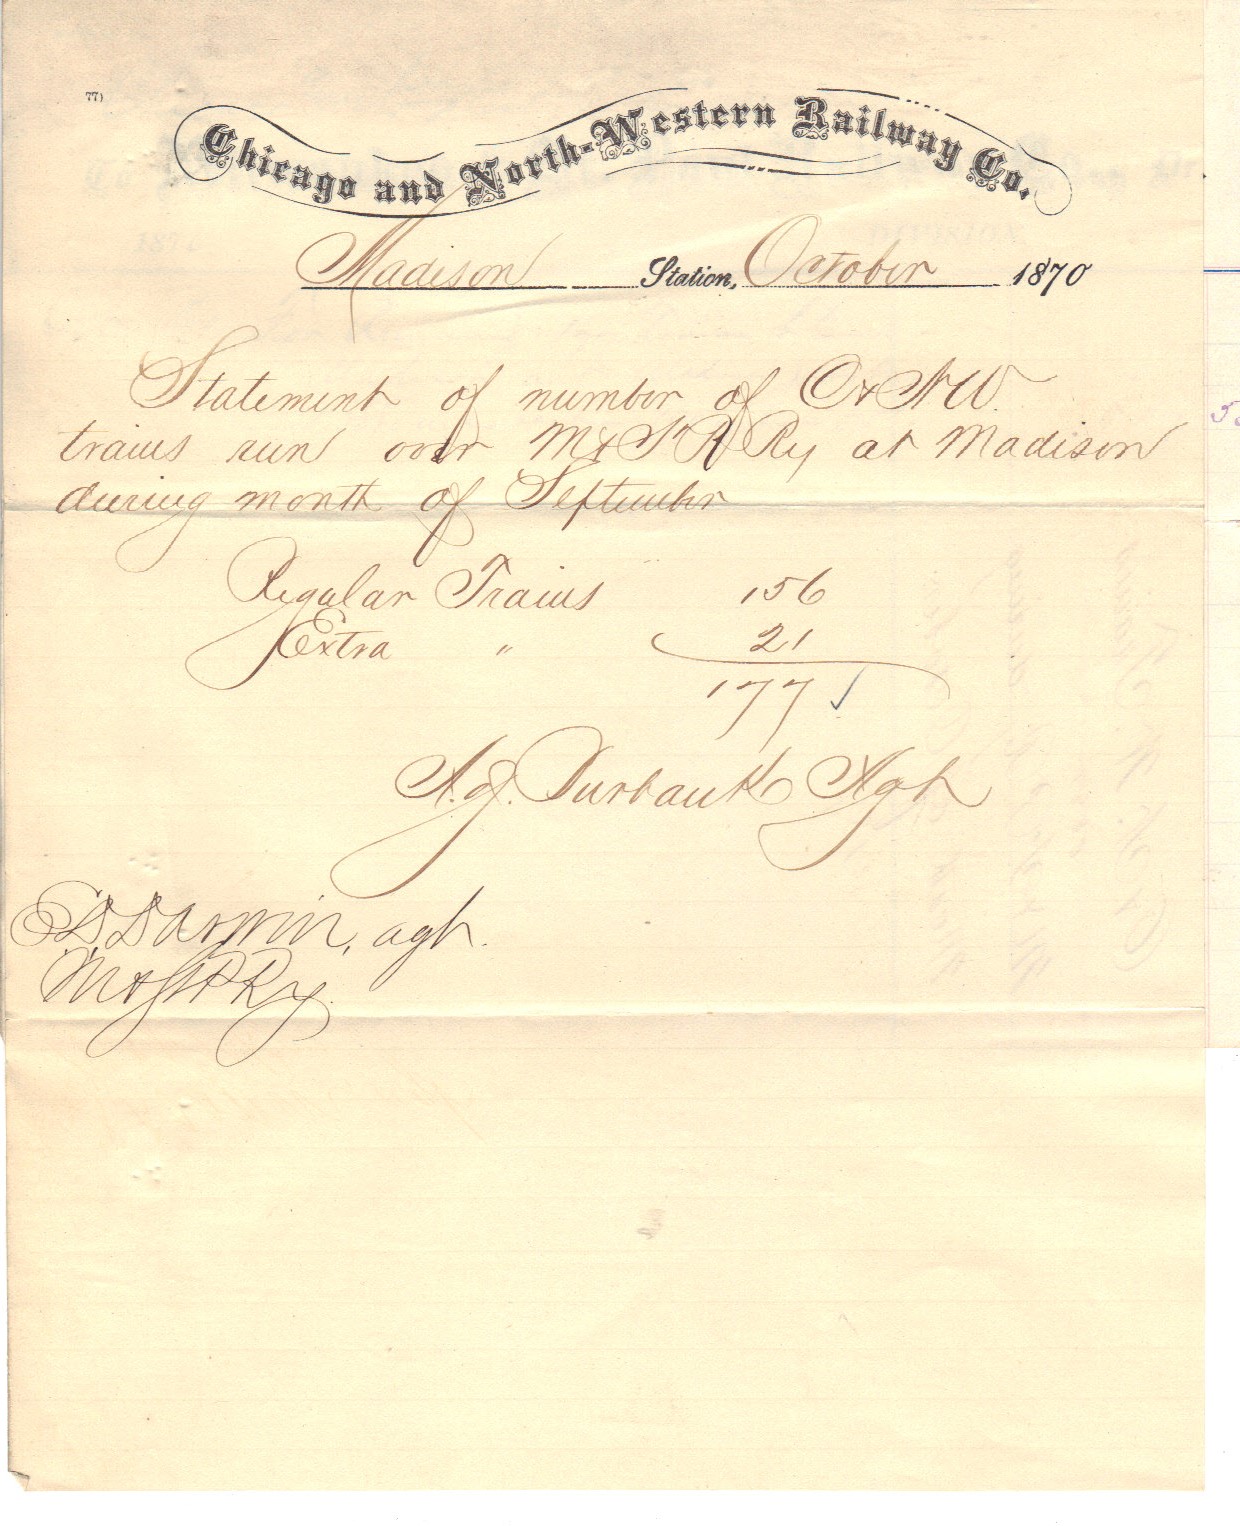 77)
Chicago and North-Western Railway Co.
Madison Station, October 1870
Statement of number of C & N W.
trains run over M & St P Ry at Madison
during month of September
Regular Trains 156
Extra " 21
177 ✓
A. J. Agt
Darwin, agt.
M & St P Ry.